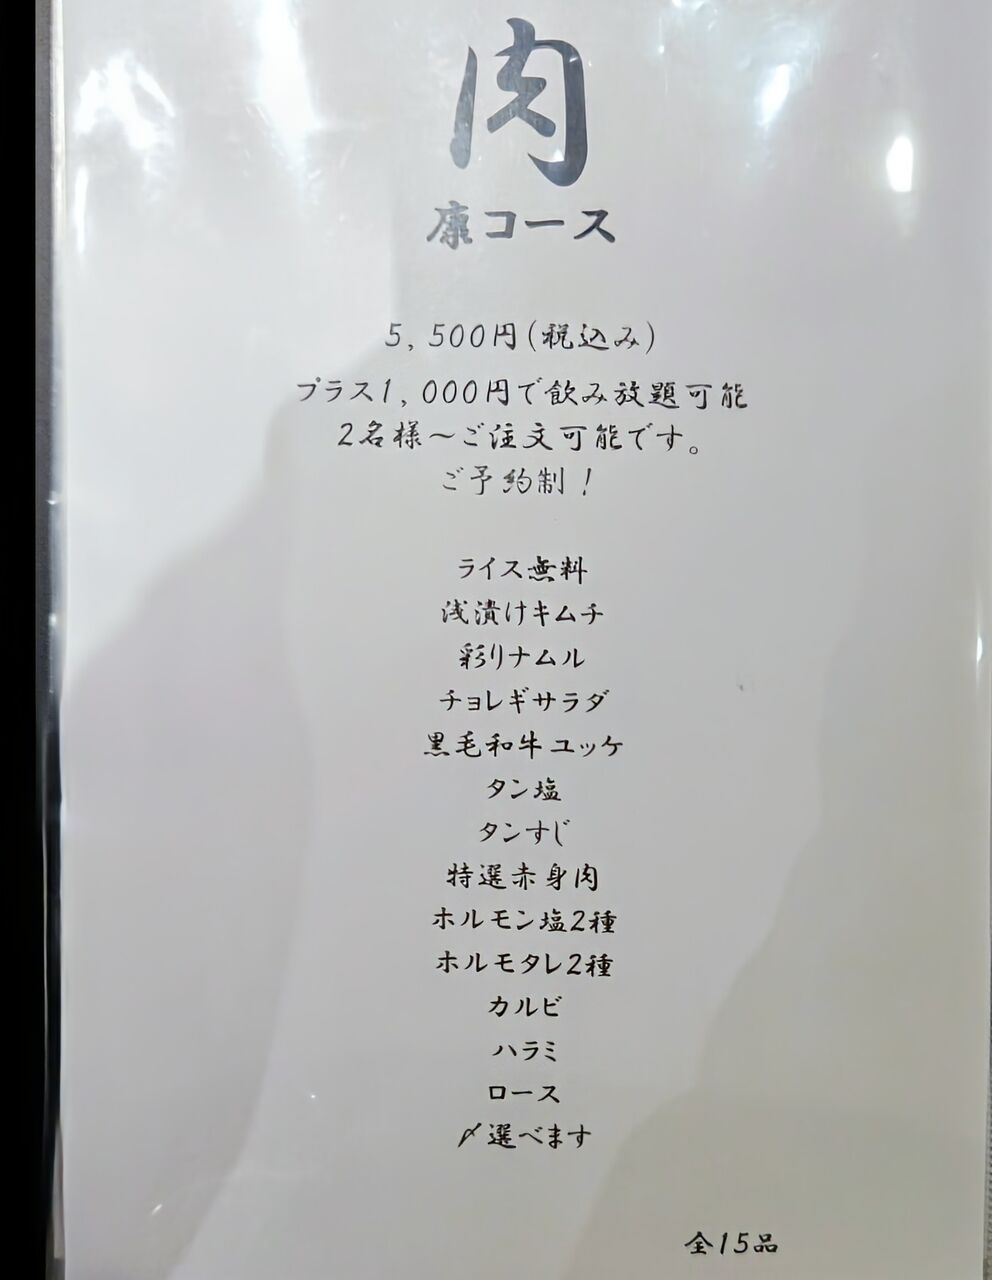 肉
康コース
5,500円(税込み)
プラス1,000円で飲み放題可能
2名様～ご注文可能です。
ご予約制！
ライス無料
浅漬けキムチ
彩りナムル
チョレギサラダ
黒毛和牛ユッケ
タン塩
タンすじ
特選赤身肉
ホルモン塩2種
ホルモタレ2種
カルビ
ハラミ
ロース
〆選べます
全15品